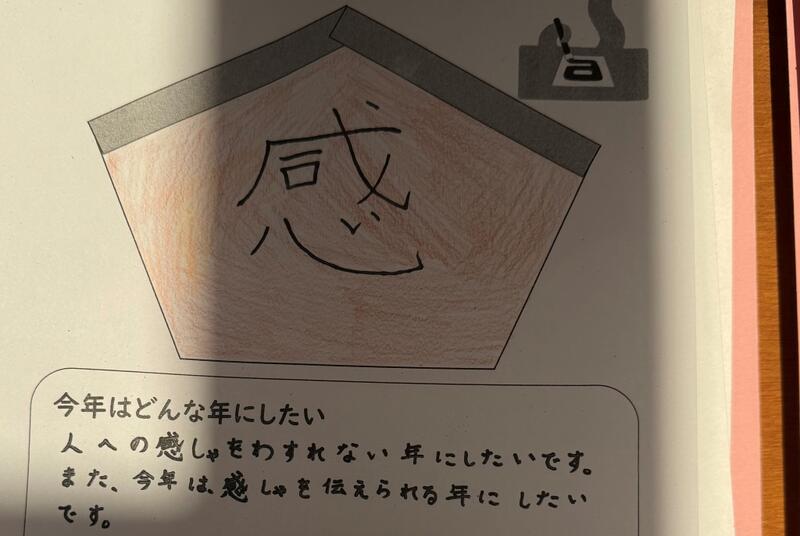 感
今年はどんな年にしたい
人への感しゃをわすれない年にしたいです。
また、今年は、感しゃを伝えられる年にしたい
です。